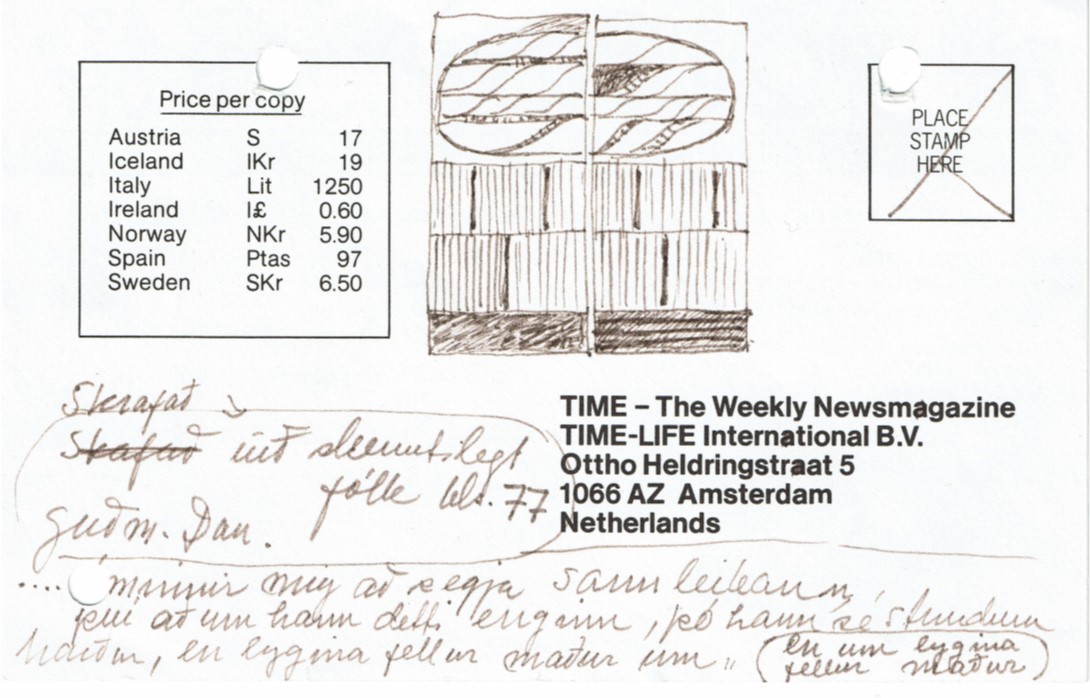 Price per copy
Austria S 17
Iceland IKr 19
Italy Lit 1250
Ireland I£ 0.60
Norway NKr 5.90
Spain Ptas 97
Sweden SKr 6.50
PLACE
STAMP
HERE
TIME – The Weekly Newsmagazine
TIME-LIFE International B.V.
Ottho Heldringstraat 5
1066 AZ Amsterdam
Netherlands
Skrafað
Skafað við skemtilegt
fólk bls. 77
Guðm. Dan.
.... minnir mig að segja sannleikann,
því að um hann detti enginn, þó hann sé stundum
harður, en lygina fellur maður um „ (en um lygina
fellur maður)